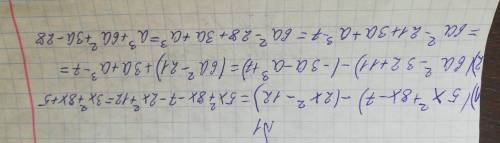 №1
1) (5x²+8x-7) -(2x²-12)=5x²+8x-7-2x²+12=3x²+8x+5
2)(6a²-32+11)-(-3a-a³+7)=(6a²-21)+3a+a³-7=
=6a²-21+3a+a³-7=6a²-28+3a+a³=a³+6a²+3a-28